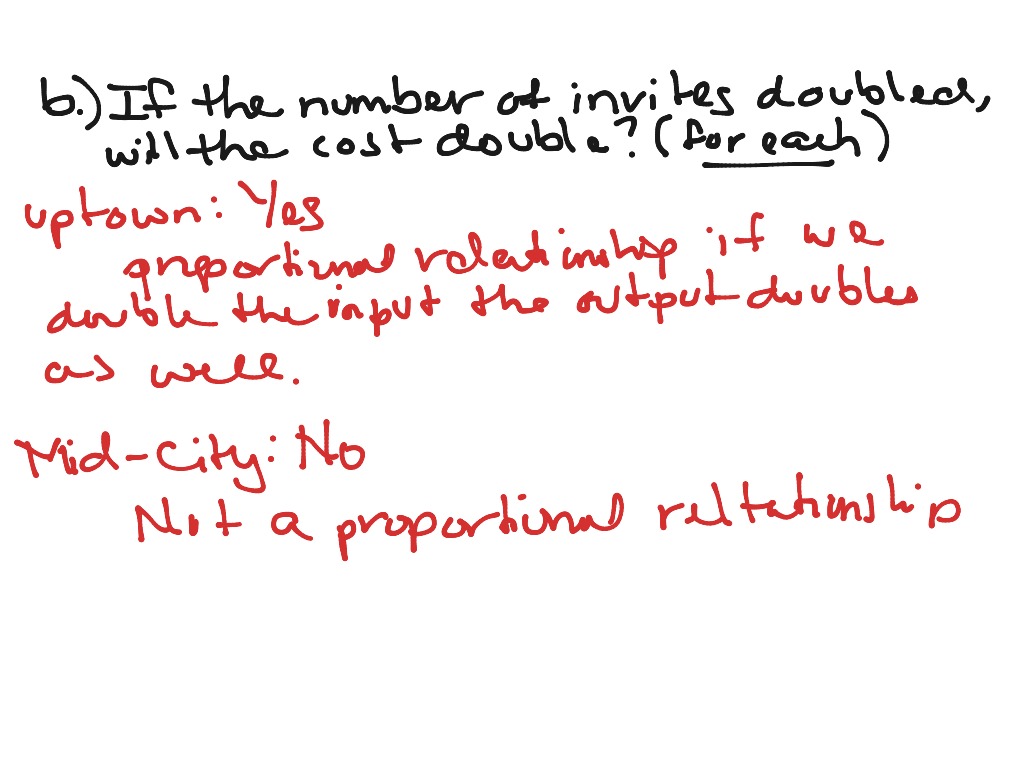 b.) If the number of invites doubled,
will the cost double? (for each)
uptown: Yes
proportional relationship if we
double the input the output doubles
as well.
Mid-City: No
Not a proportional reltationship